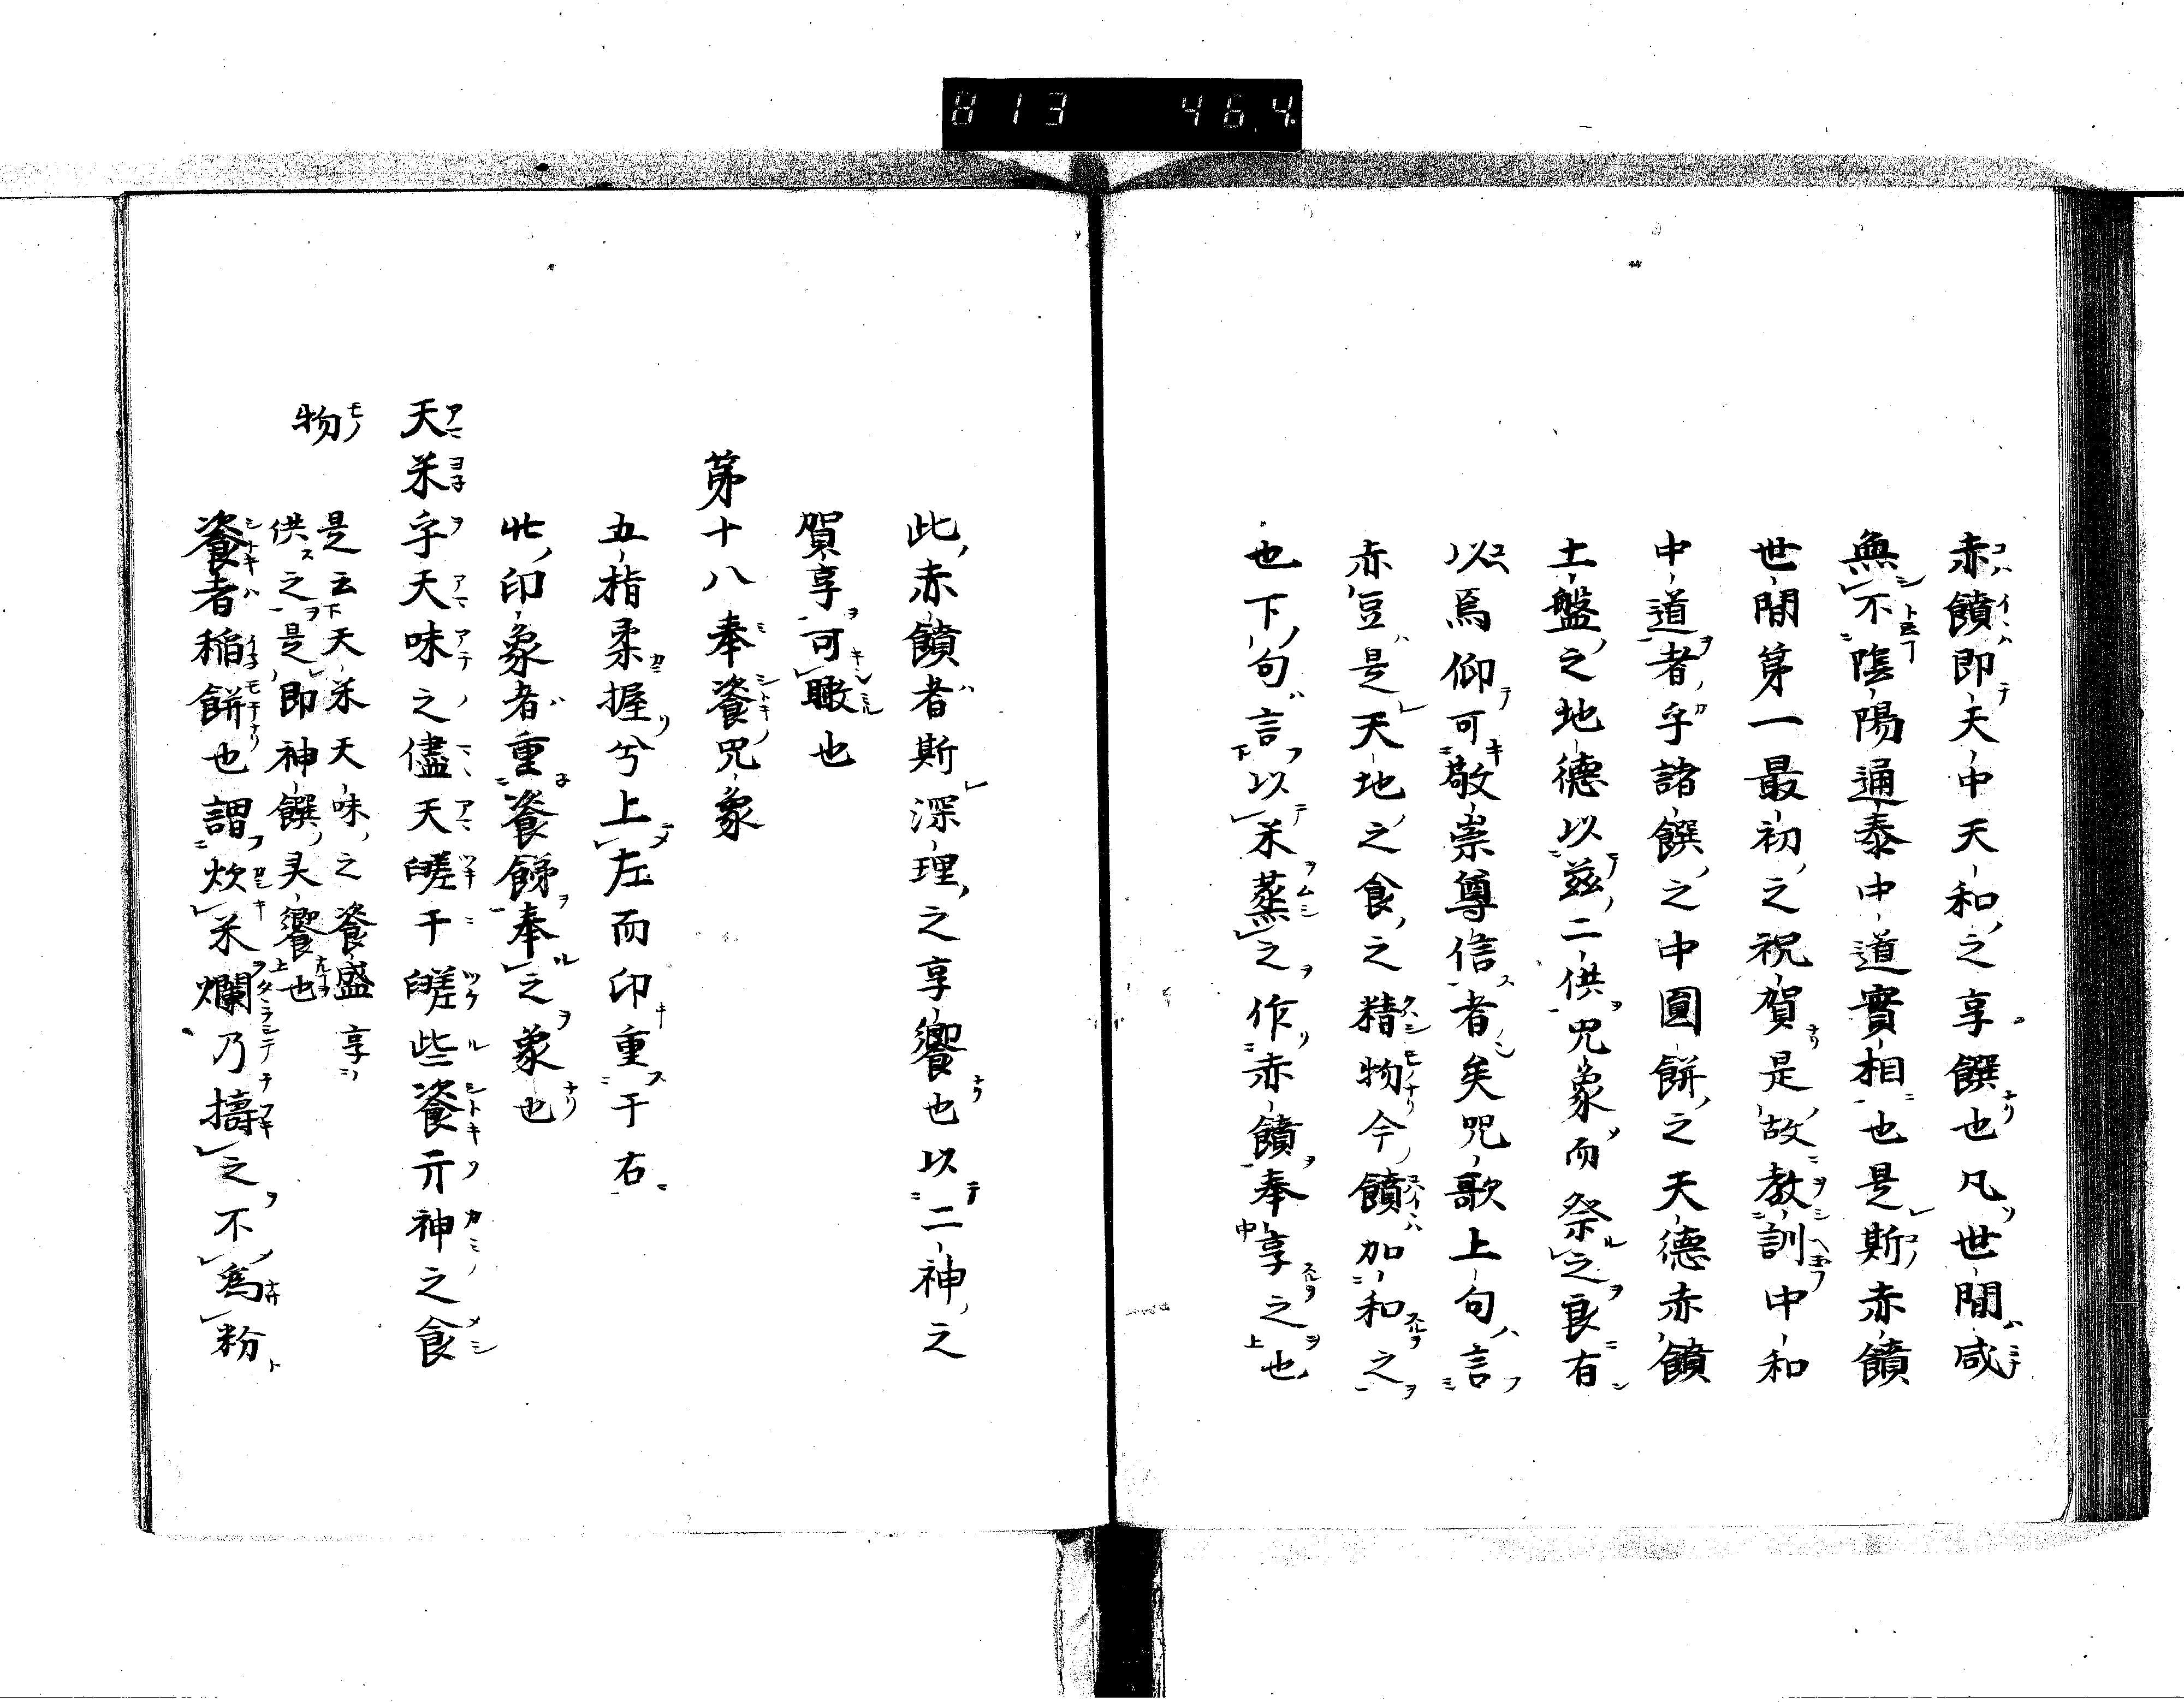 813 464
赤饙即天中天和之享饌也凡世間咸
無不陰陽通泰中道實相也是斯赤饙
世間第一最初之祝賀是故教訓中和
中道者乎諸饌之中圓餅之天德赤饙
土盤之地德以茲二供咒象而祭之良有
以焉仰可敬崇尊信者矣咒歌上句言
赤豆是天地之食之精物今饙加和之
也下句言以米蒸之作赤饙奉享之也
此赤饙者斯深理之享饗也以二神之
賀享可瞰也
第十八奉餈咒象
五指柔握兮上左而印重于右
此印象者重餈餙奉之象也
天米乎天味之儘天 干 些餈亓神之食
物
是云天米天味之餈盛享
供之是即神饌 饗也
餈者稲餅也謂炊米爛乃擣之不為粉